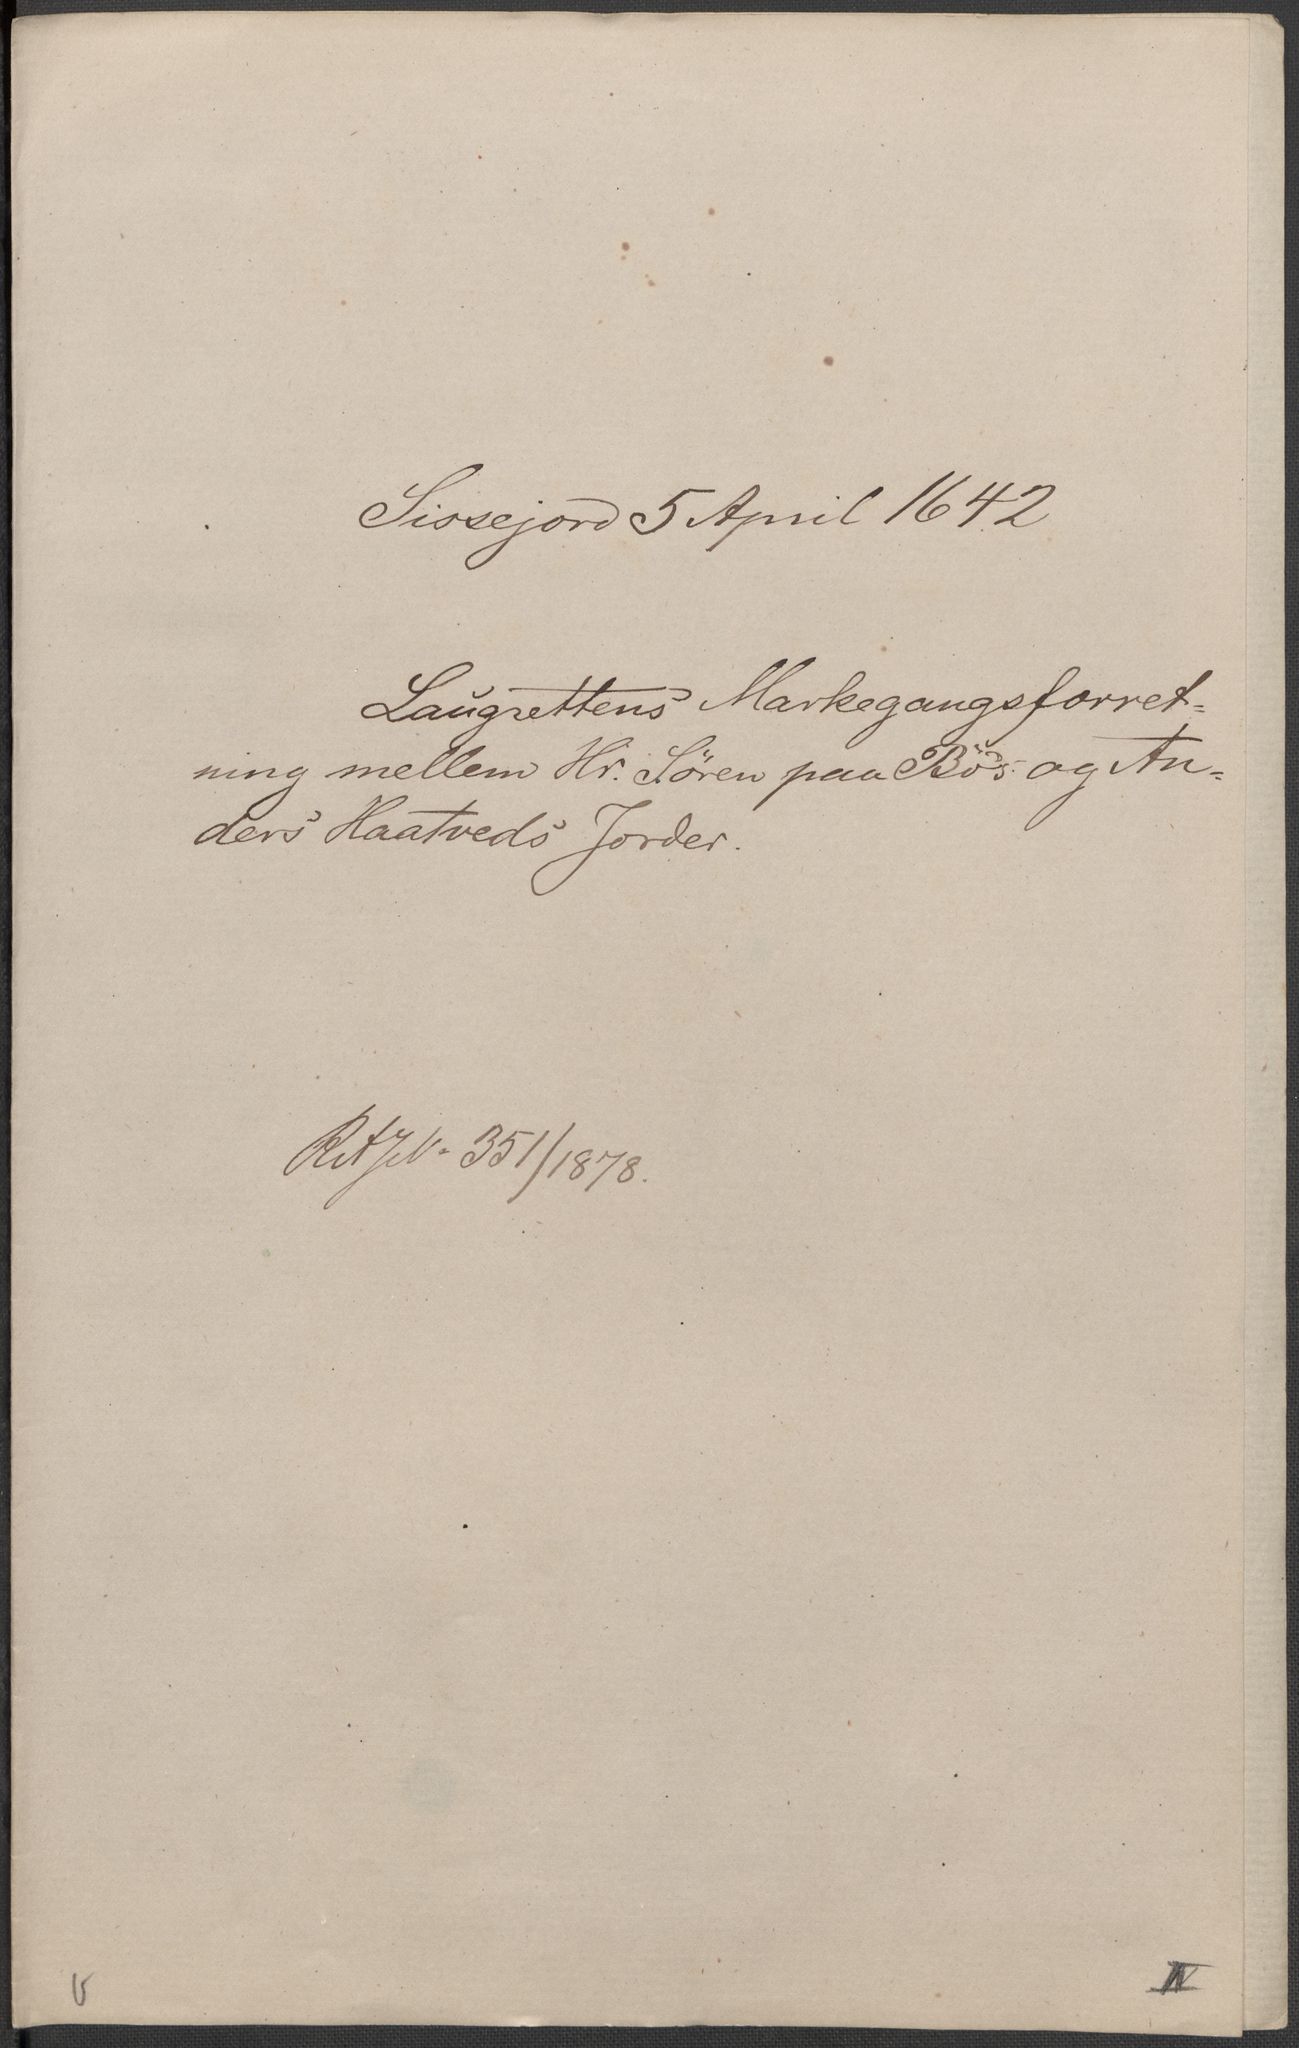 Sissejord 5 April 1642
Laugrettens Markegangsforret=
ning mellem Hr. Sören paa Bö's og An=
ders Haatveds Jorder.
RAJN. 351/1878.
V
IV